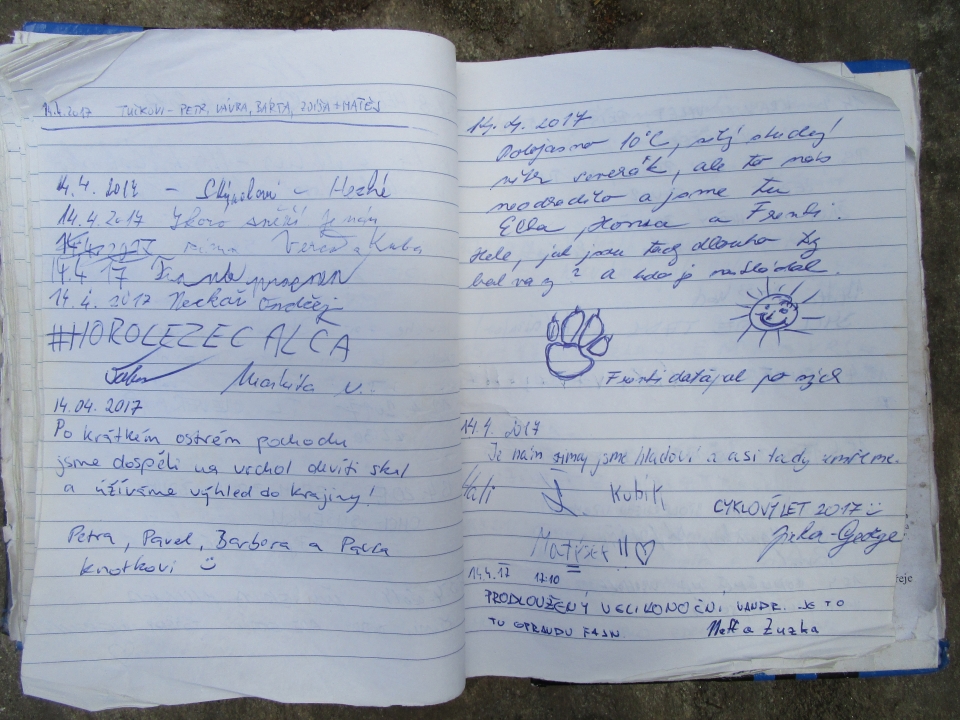 14.4.2017 TUČKOVI - PETR, VAVRA, BÁRTA, + MATĚJ
14.4.2017 - -
14.4.2017 Skoro sněží Je nám
14.4.2017 zima Verča a Kuba
14.4 17
14.4. 2017 Ondřej
#HOROLEZEC ALČA
Markéta V.
14.04.2017
Po krátkém ostrém pochodu
jsme dospěli na vrchol devíti skal
a užíváme výhled do krajiny!
Petra, Pavel, Barbora a Pavla
Knotkovi
14.4.2017
Polojasno 10°C, silý studený
vítr severák, ale to nás
neodradilo a jsme tu
Ella, Honza a Frenki.
Hele, jak jsou tady dlouho ty
balvany? a kdo je naskládal.
Frenki datájul po nich
14.4. 2017
Je nám zima, jsme hladoví a asi tady umřeme.
Kubík
CYKLOVÝLET 2017
Jirka-George
Matýsek !!
14.4.17 17:10
PRODLOUŽENÝ VELIKONOČNÍ VANDR. JE TO
TU OPRAVDU FAJN
a Zuzka